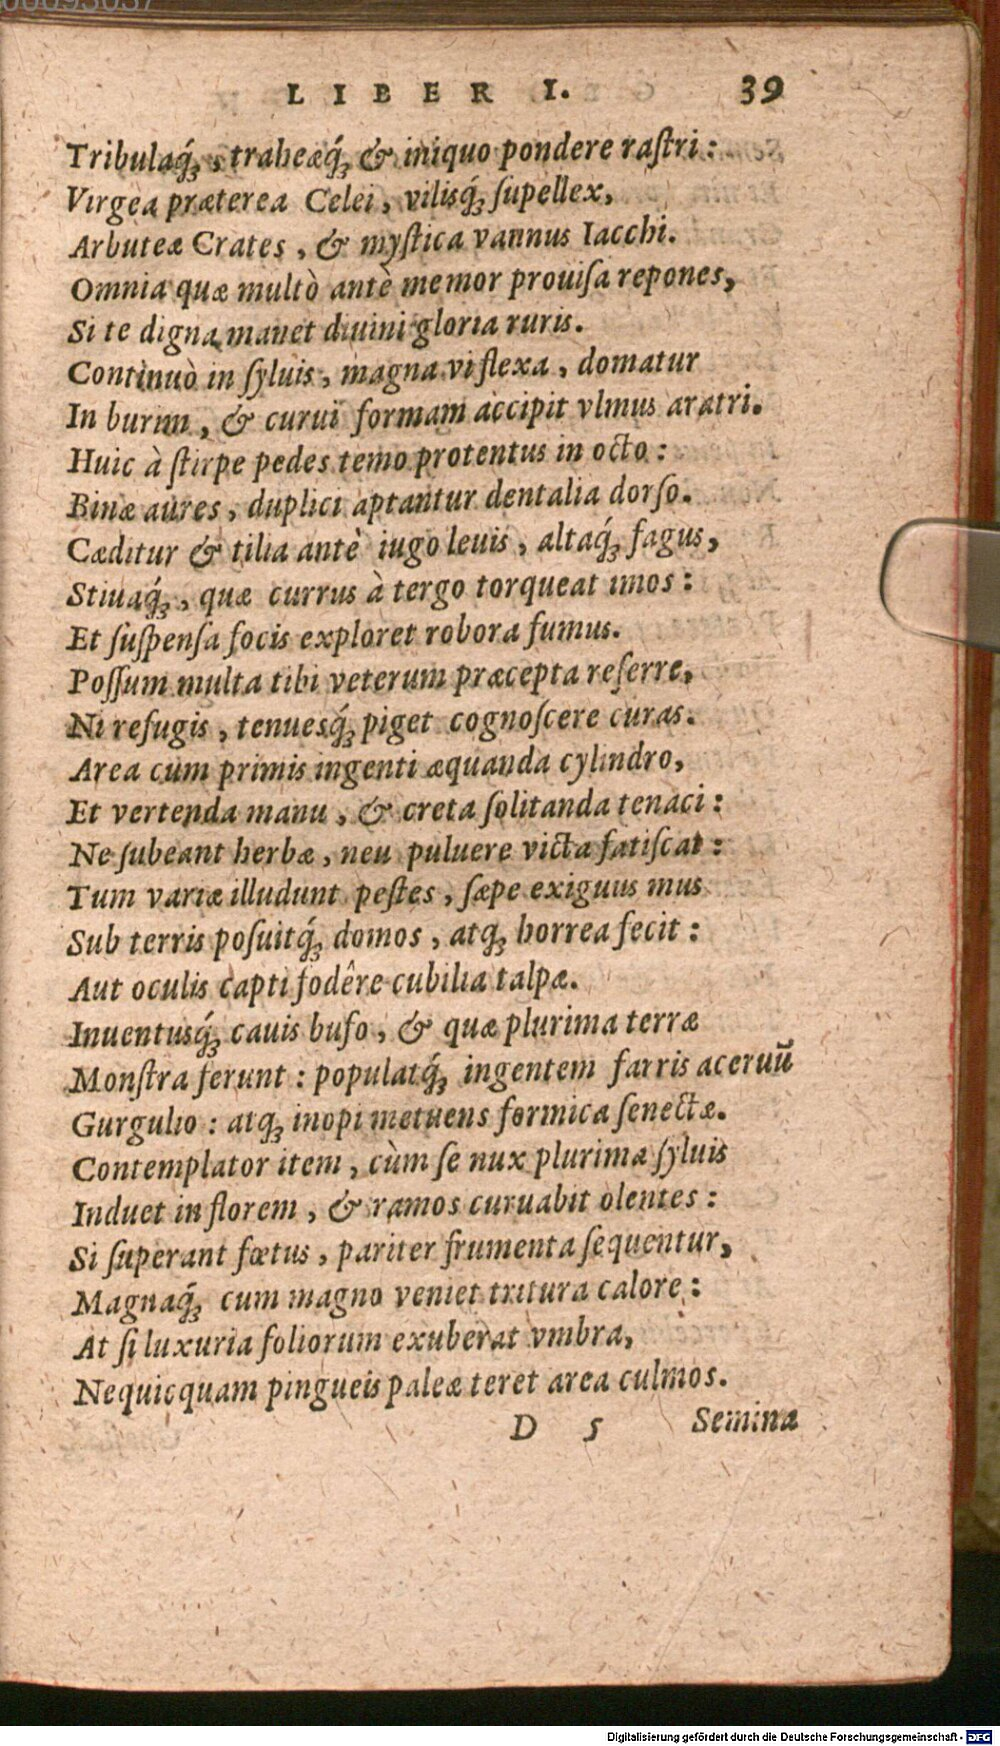 LIBER I. 39
Tribulaq́ꝫ, traheæq́ꝫ & iniquo pondere raſtri:
Virgea præterea Celei, vilisq́ꝫ ſupellex,
Arbuteæ Crates, & myſtica vannus Iacchi.
Omnia quæ multò antè memor prouiſa repones,
Si te digna manet diuini gloria ruris.
Continuò in ſyluis, magna vi flexa, domatur
In burim, & curui formam accipit vlmus aratri.
Huic à ſtirpe pedes temo protentus in octo:
Binæ aures, duplici aptantur dentalia dorſo.
Cæditur & tilia antè iugo leuis, altaq́ꝫ fagus,
Stiuaq́ꝫ, quæ currus à tergo torqueat imos:
Et ſuſpenſa focis exploret robora fumus.
Poſſum multa tibi veterum præcepta referre,
Ni refugis, tenuesq́ꝫ piget cognoſcere curas.
Area cum primis ingenti æquanda cylindro,
Et vertenda manu, & creta ſolitanda tenaci:
Ne ſubeant herbæ, neu puluere victa fatiſcat:
Tum variæ illudunt peſtes, ſæpe exiguus mus
Sub terris poſuitq́ꝫ domos, atqꝫ horrea fecit:
Aut oculis capti fodêre cubilia talpæ.
Inuentusq́ꝫ cauis bufo, & quæ plurima terræ
Monſtra ferunt: populatq́ꝫ ingentem farris aceruū
Gurgulio: atqꝫ inopi metuens formica ſenectæ.
Contemplator item, cùm ſe nux plurima ſyluis
Induet in florem, & ramos curuabit olentes:
Si ſuperant fœtus, pariter frumenta ſequentur,
Magnaq́ꝫ cum magno veniet tritura calore:
At ſi luxuria foliorum exuberat vmbra,
Nequicquam pingueis paleæ teret area culmos.
D 5 Semina
Digitalisierung gefördert durch die Deutsche Forschungsgemeinschaft - DFG